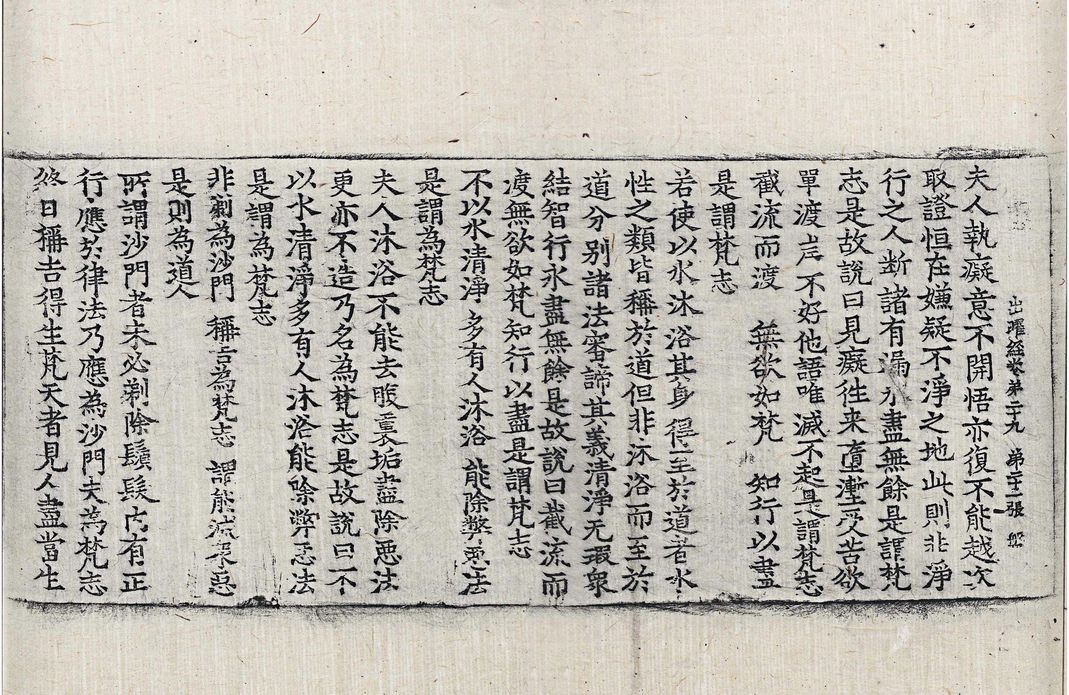 出曜經卷第二十九 第十二張 般
夫人執癡意不開悟亦復不能越次
取證恒在嫌疑不淨之地此則非淨
行之人断諸有漏永盡無餘是謂梵
志是故說曰見癡徃来墮壍受苦欲
單渡岸不好他語唯滅不起是謂梵志
截流而渡 無欲如梵 知行以盡
是謂梵志
若使以水沐浴其身得至於道者水
性之類皆稱於道但非沐浴而至於
道分别諸法審諦其義清淨无瑕衆
結智行永盡無餘是故說曰截流而
渡無欲如梵知行以盡是謂梵志
不以水清淨 多有人沐浴 能除弊惡法
是謂為梵志
夫人沐浴不能去腹裏垢盡除惡法
更亦不造乃名為梵志是故說曰不
以水清淨多有人沐浴能除弊惡法
是謂為梵志
非剃為沙門 稱吉為梵志 謂能滅衆惡
是則為道人
所謂沙門者未必剃除鬚髮内有正
行應於律法乃應為沙門夫為梵志
終日稱吉得生梵天者見人盡當生